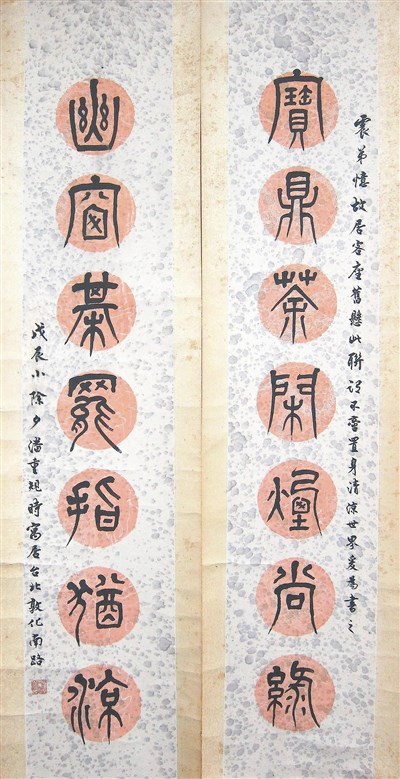 震弟憶故居客座舊懸此聯謂不啻置身清涼世界爰為書之
寶鼎茶閑煙尚綠
幽窗棊罷指猶涼
戊辰小除夕潘重規時寓居台北敦化南路